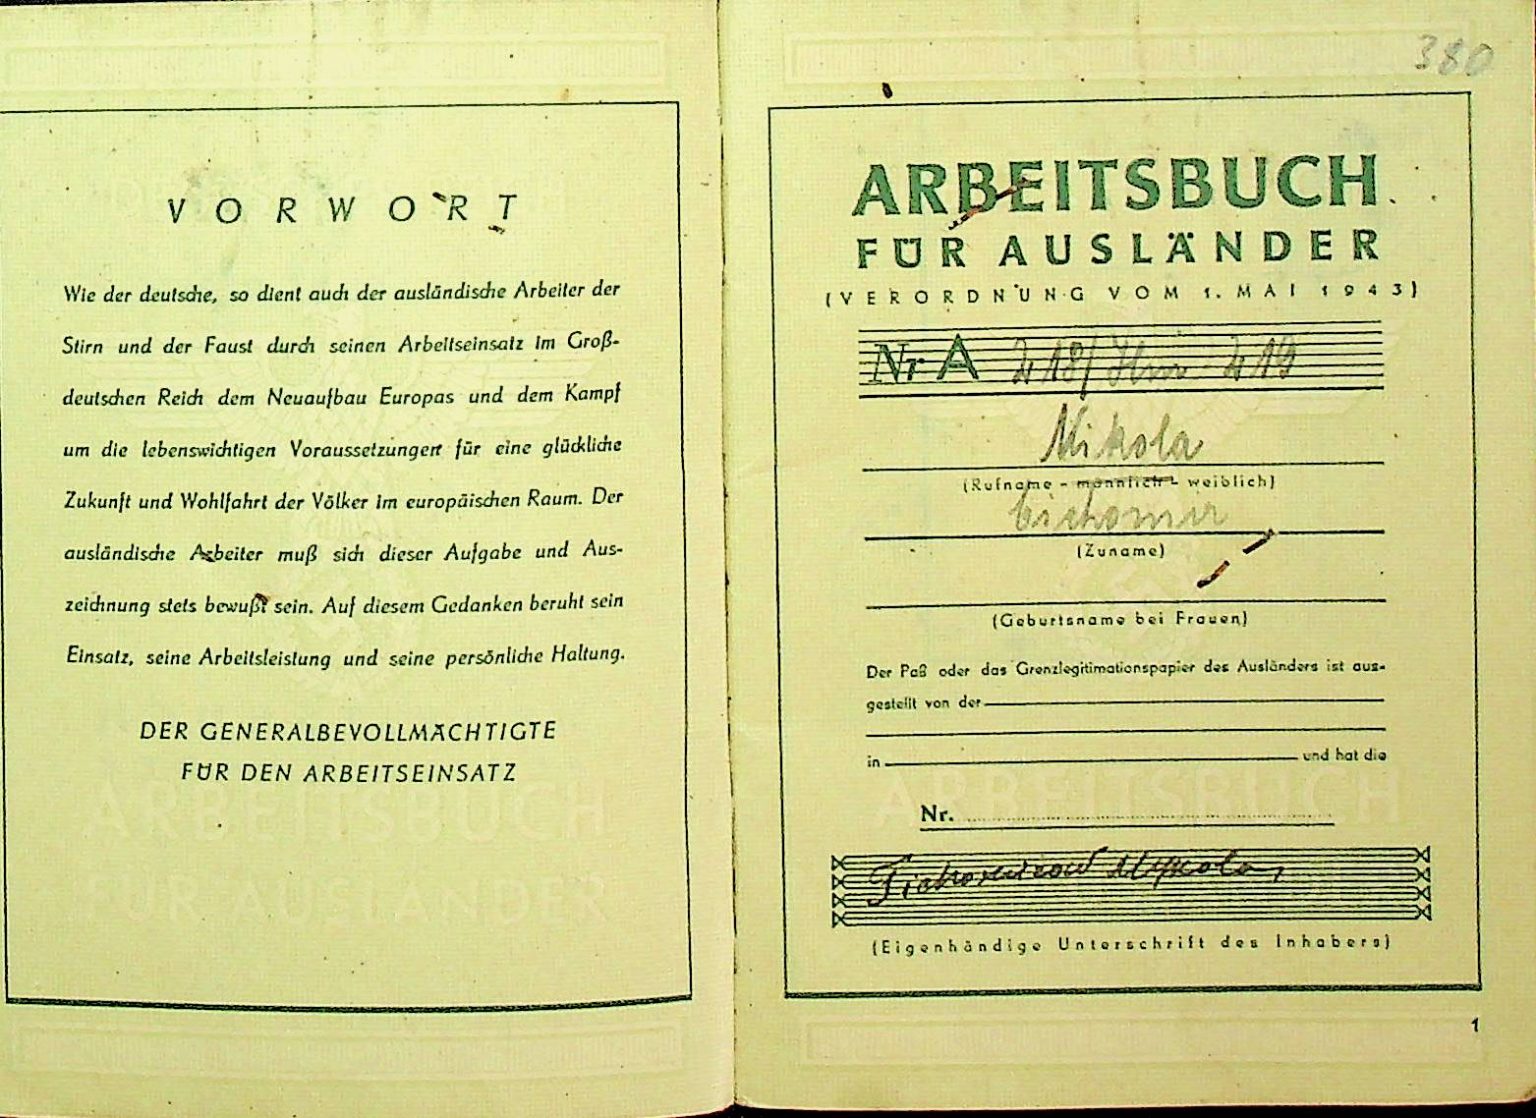 VORWORT
Wie der deutsche, so dient auch der ausländische Arbeiter der
Stirn und der Faust durch seinen Arbeitseinsatz im Groß-
deutschen Reich dem Neuaufbau Europas und dem Kampf
um die lebenswichtigen Voraussetzungen für eine glückliche
Zukunft und Wohlfahrt der Völker im europäischen Raum. Der
ausländische Arbeiter muß sich dieser Aufgabe und Aus-
zeichnung stets bewußt sein. Auf diesem Gedanken beruht sein
Einsatz, seine Arbeitsleistung und seine persönliche Haltung.
DER GENERALBEVOLLMÄCHTIGTE
FÜR DEN ARBEITSEINSATZ
380
ARBEITSBUCH
FÜR AUSLÄNDER
(VERORDNUNG VOM 1. MAI 1943)
Nr A
Mikola
(Rufname - männlich - weiblich)
(Zuname)
(Geburtsname bei Frauen)
Der Paß oder das Grenzlegitimationspapier des Ausländers ist aus-
gestellt von der
in und hat die
Nr.
(Eigenhändige Unterschrift des Inhabers)
1